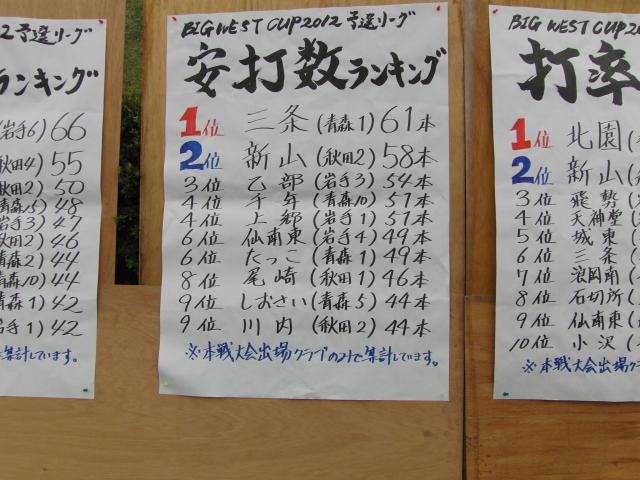 2 予選リーグ
ランキング
(岩手6) 66
秋田4) 55
秋田2) 50
青森15) 48
岩手3) 47
秋田2) 46
青森2) 44
青森10) 44
青森1) 42
岩手1) 42
集計しています。
BIG WEST CUP 2012 予選リーグ
安打数ランキング
1位 三条 (青森1) 61本
2位 新山 (秋田2) 58本
3位 乙部 (岩手3) 54本
4位 千年 (青森10) 51本
4位 上郷 (岩手1) 51本
6位 仙南東 (岩手4) 49本
6位 たっこ (青森1) 49本
8位 尾崎 (秋田1) 46本
9位 しおさい (青森5) 44本
9位 川内 (秋田2) 44本
※本戦大会出場クラブのみで集計しています。
BIG WEST CUP 20
打率
1位 北園
2位 新山
3位 飛勢
4位 天神堂
5位 城東
6位 三条
7位 浪岡南
8位 石切所
9位 仙南東
10位 小沢
※本戦大会出場クラ